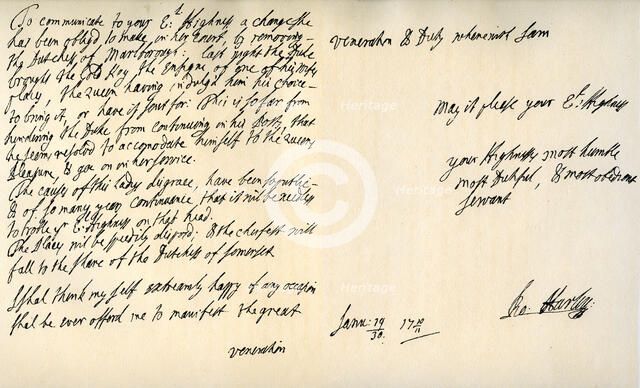 To communicate to your E:ll Highness a change She
has been obligd to make in her Court by removing
the Dutchess of Marlborough: last night the Duke
brought the Gold Key, the Ensigne of one of his wifes
places, the Queen having indulgd him his choice
to bring it, or have it sent for: This is so far from
hindering the Duke from continuing in his Posts, that
he seems resolvd to accomodate himself to the Queens
pleasure, & goe on in her service.
The causes of this Ladys disgrace, have been so publie
& of so many years continuance, that it wil be needless
to troble yr E:ll Highness on that head.
The places wil be speedily disposd, & the cheifest will
fall to the share of the Dutchess of Somerset
I shal think my self extreamly happy if any occasion
shal be ever afford me to manifest the great
veneration
veneration & Duty wherewith I am
May it please your E:ll Highness
your Highness most humble
most Dutyful, & most obedient
servant
Ro: Harley:
Janu: 19/30. 17 10/11
Heritage